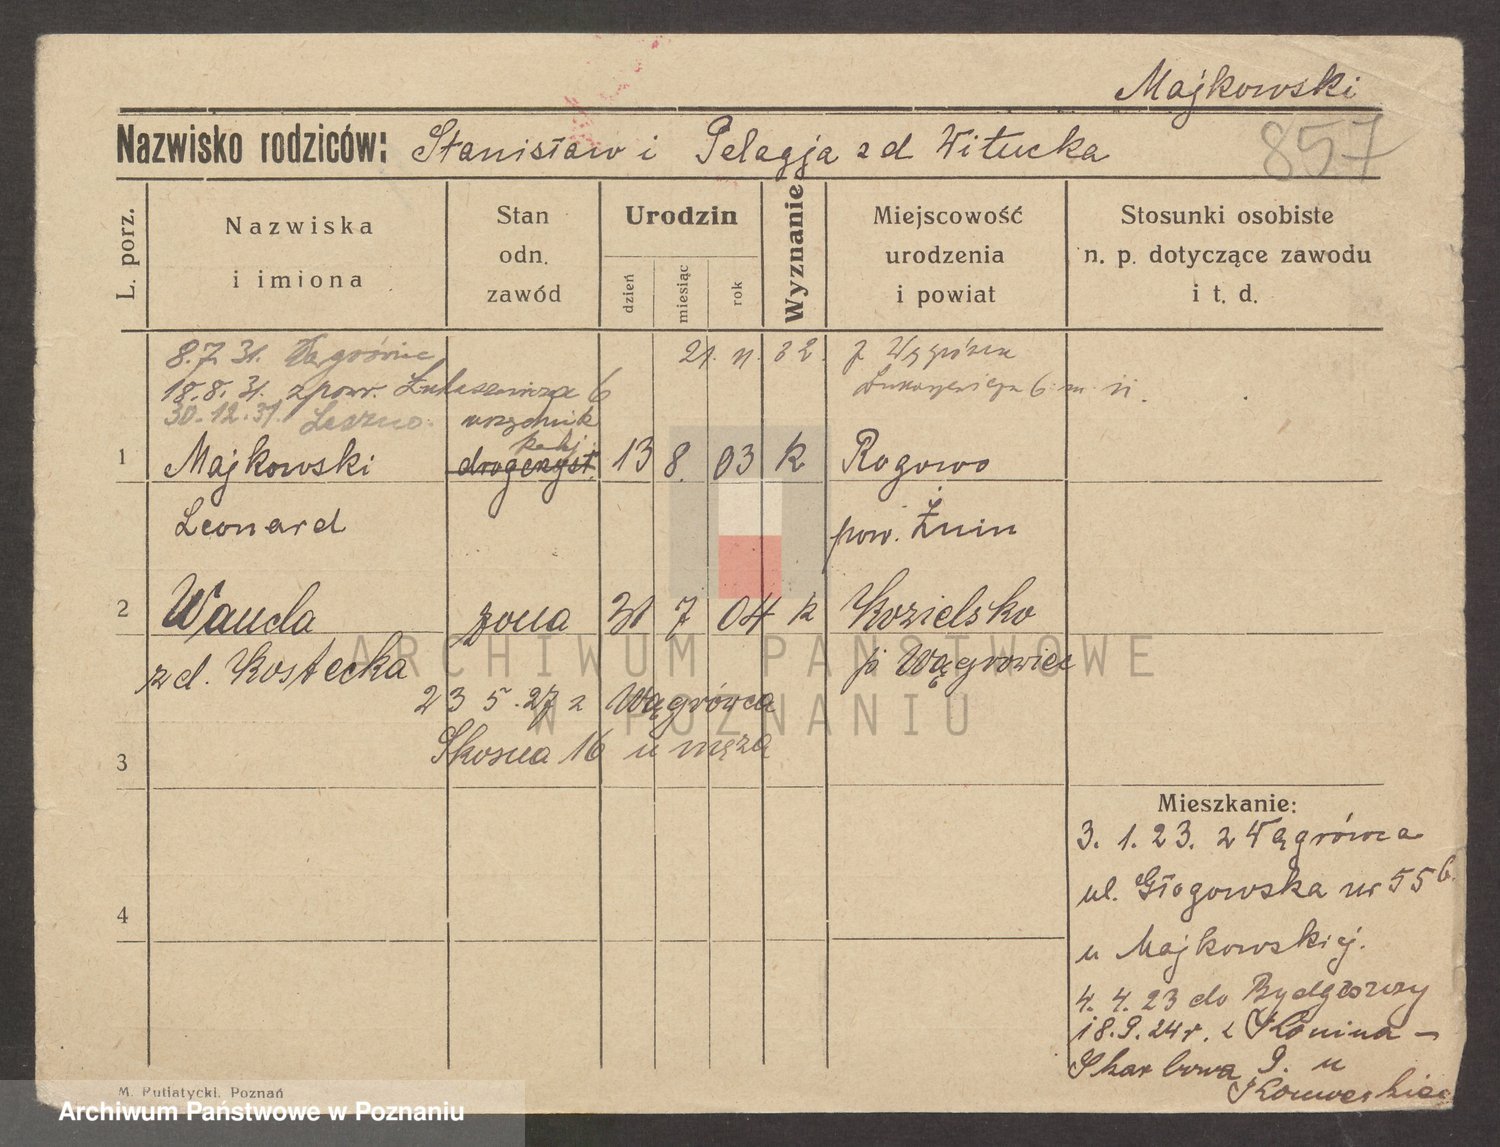 Majkowski
857
Nazwisko rodziców: Stanisław i Pelagja z d Witucka
L. porz.
Nazwiska
i imiona
Stan
odn.
zawód
Urodzin
dzień
miesiąc
rok
Wyznanie
Miejscowość
urodzenia
i powiat
Stosunki osobiste
n. p. dotyczące zawodu
i t. d.
8.7.31. Wągrowiec
21. 11. 32.
18.8.31. z pow. Łukaszewicza 6
30.12.31. Leszno.
urzędnik
kolj.
1 Majkowski drogeryst. 13 8. 03 k Rogowo
Leonard pow. Żnin
2 Wanda żona 31 7 04 k Kozielsko
z d. Kostecka p. Wągrowiec
23 5. 27 z Wągrówca
3 Skosna 16 u męża
4
Mieszkanie:
3. 1. 23. z Wągrówca
ul. Głogowska nr 55 b.
u Majkowskiej.
4. 4. 23 do Bydgoszczy
18.9.24 r. z Konina -
Skarbowa 9. u
M. Putiatycki, Poznań
ARCHIWUM PAŃSTWOWE
W POZNANIU
Archiwum Państwowe w Poznaniu